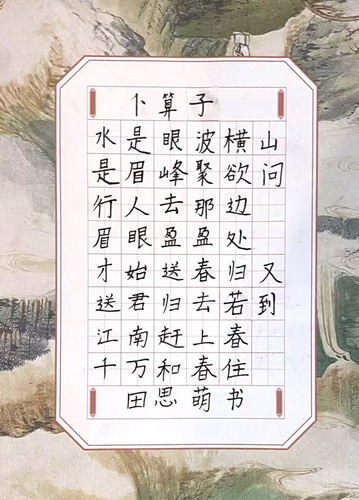 卜算子
水是眼波横山
是眉峰聚欲问
行人去那边
眉眼盈盈处
才始送春归又
送君归去若到
江南赶上春
千万和春住
田思萌书